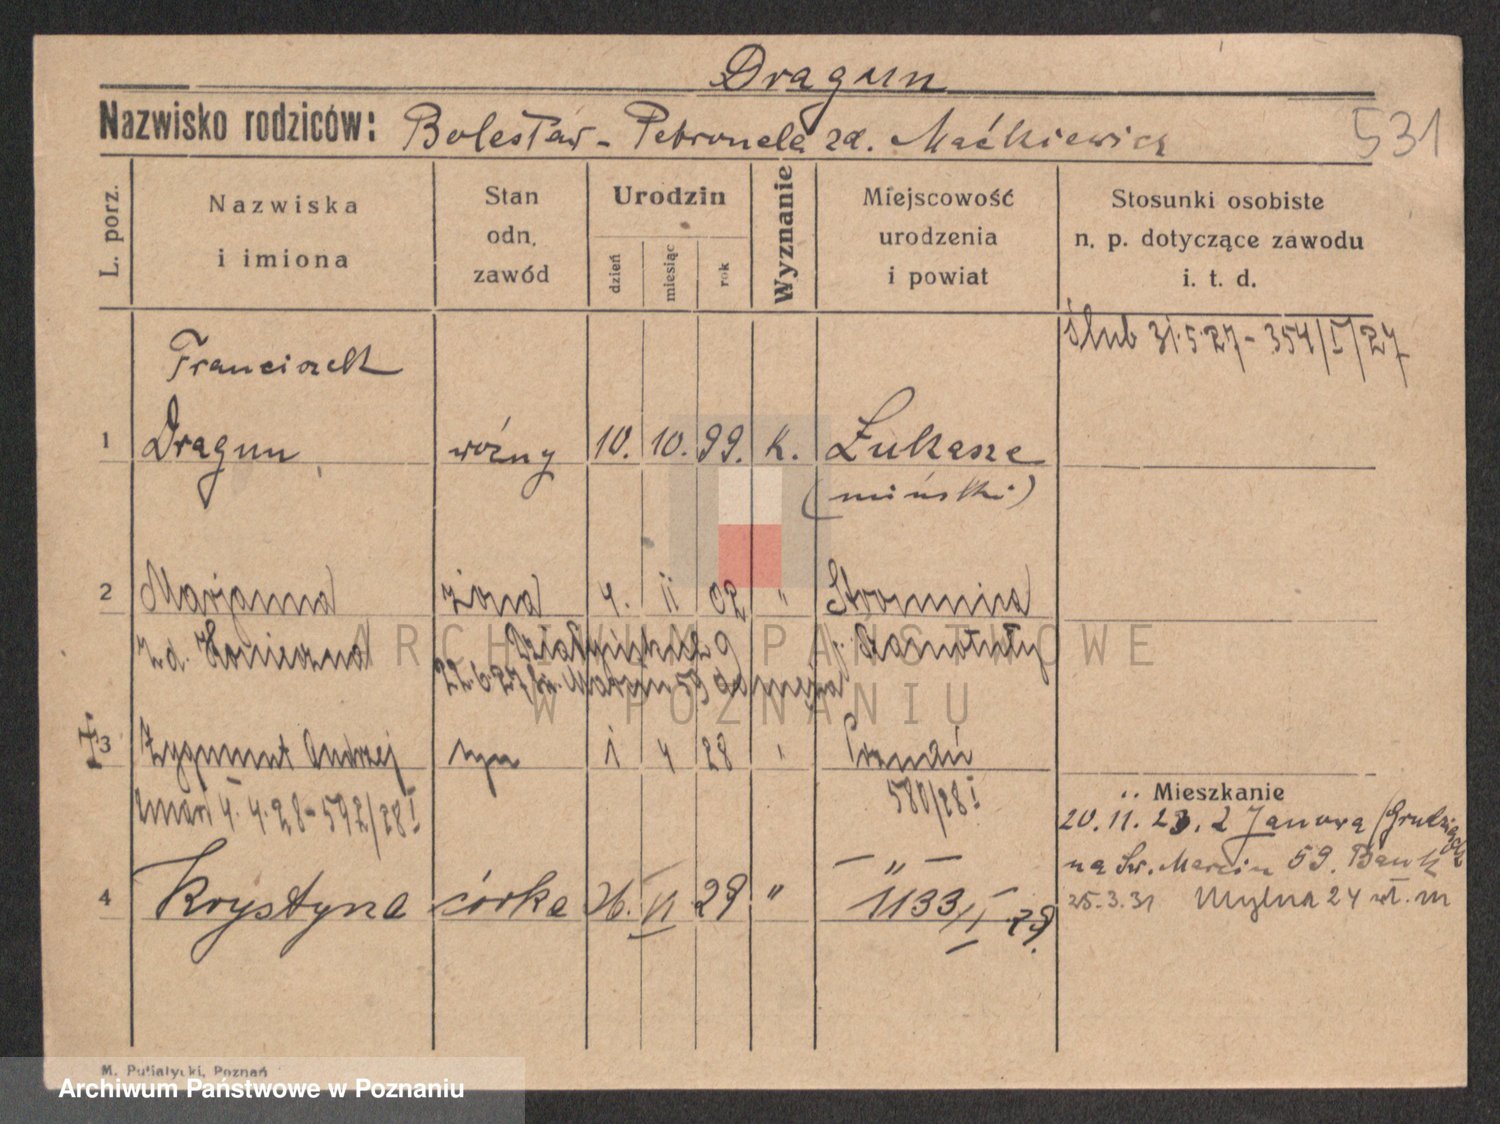 Dragun
Nazwisko rodziców: Bolesław - Petronela zd. Maćkiewicz 531
L. porz.
Nazwiska
i imiona
Stan
odn.
zawód
Urodzin
dzień
miesiąc
rok
Wyznanie
Miejscowość
urodzenia
i powiat
Stosunki osobiste
n. p. dotyczące zawodu
i. t. d.
Ślub 31.5.27 - 354/I/27
Franciszek
1 Dragun woźny 10. 10. 99. k. Łukasze
(miński)
2 Marjanna żona 4. 11 02 " Stromnica
zd. Konieczna Działyńskich 9
22.6.27 św. Marcin 59
3 Zygmunt Andrzej syn 1 4 28 " Poznań
zmarł 4.4.28 - 592/28 I 580/28 I
Mieszkanie
20.11.23. z Janowa (Grudziądz
na Św. Marcin 59. Bank
4 Krystyna córka 26. VI 29 " — " —
1133/I 29.
25.3.31 Mylna 24 wł. m
M. Putiatycki, Poznań
ARCHIWUM PAŃSTWOWE
W POZNANIU
Archiwum Państwowe w Poznaniu